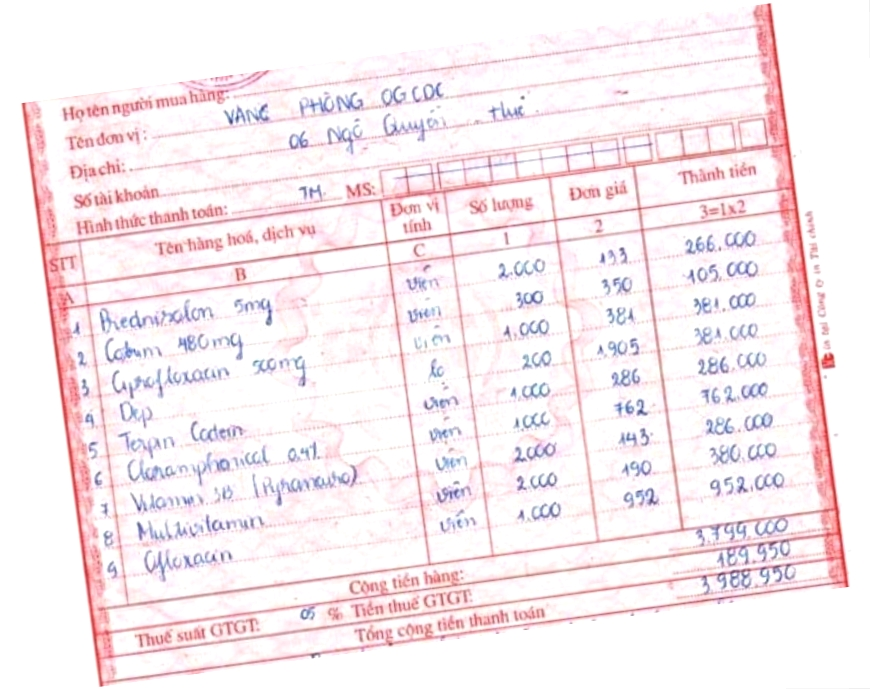 Họ tên người mua hàng:
Tên đơn vị: VĂNG PHÒNG OGCDC
Địa chỉ: 06 Ngô Quyền - Huế
Số tài khoản
Hình thức thanh toán: TM. MS:
STT Tên hàng hoá, dịch vụ Đơn vị tính Số lượng Đơn giá Thành tiền
A B C 1 2 3=1x2
1 Prednisolon 5mg viên 2.000 133 266.000
2 Cotrim 480mg viên 300 350 105.000
3 Ciprofloxacin 500mg viên 1.000 381 381.000
4 Dep lo 200 1.905 381.000
5 Terpin Codein viên 1.000 286 286.000
6 Cloramphenicol 0.4% viên 1000 762 762.000
7 Vitamin 3B viên 2000 143 286.000
8 Multivitamin viên 2.000 190 380.000
9 Ofloxacin viên 1.000 952 952.000
Cộng tiền hàng: 3.799.000
Thuế suất GTGT: 05 % Tiền thuế GTGT: 189.950
Tổng cộng tiền thanh toán 3.988.950
in tại Công ty in Tài chính